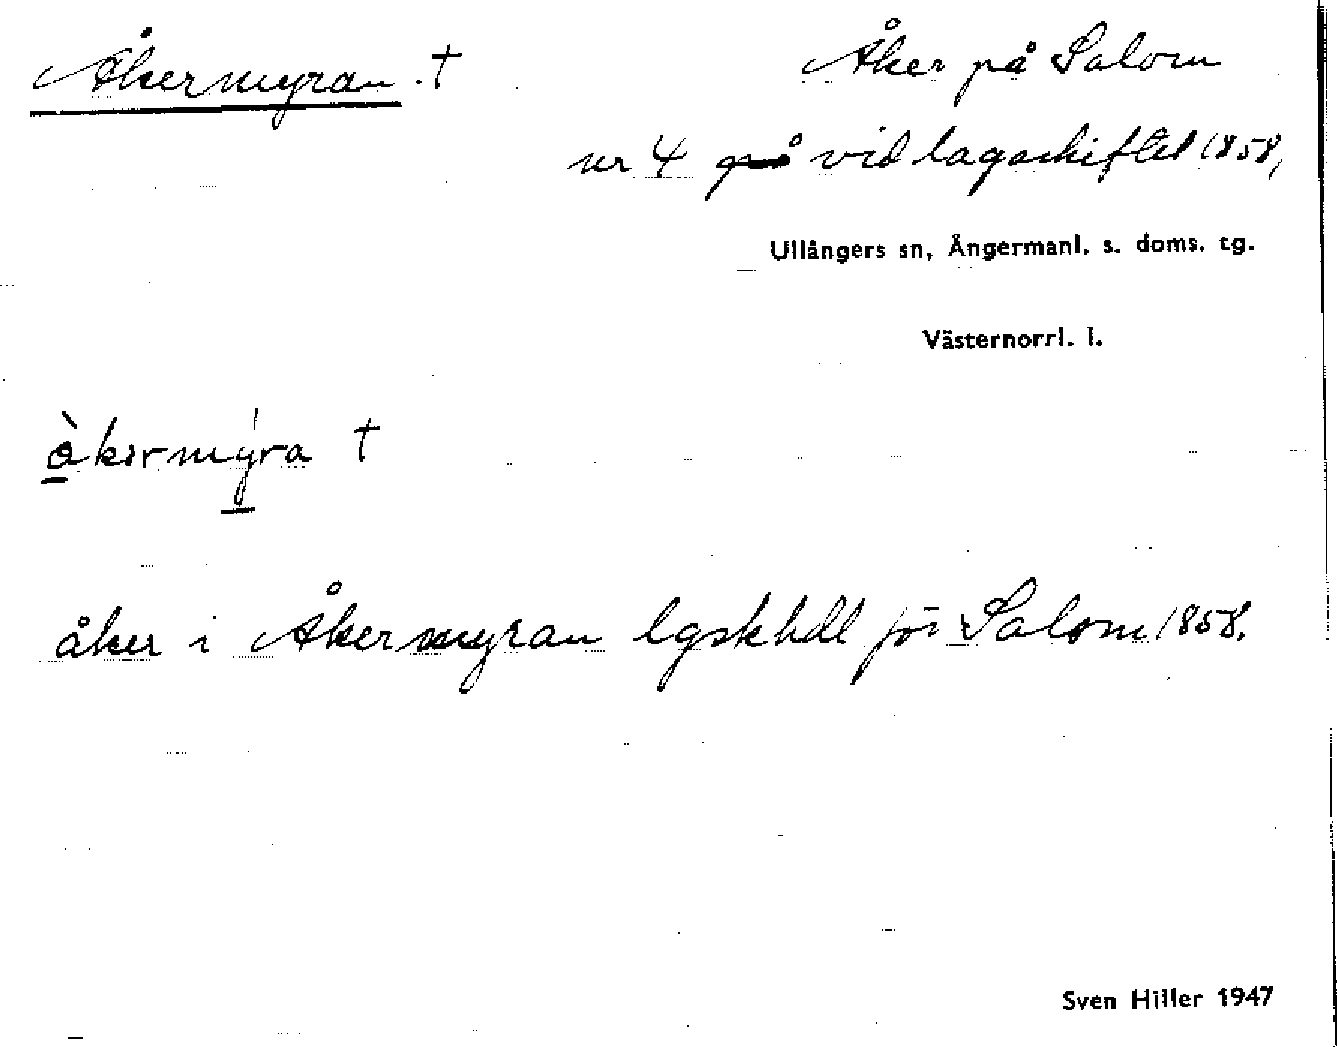 Åkermyran. †
Åker på Salom
nr 4 på vid lagaskiftet 1858,
Ullångers sn, Ångermanl. s. doms. tg.
Västernorrl. l.
åkermyra †
åker i Åkermyran lgskhdl för Salom 1858.
Sven Hiller 1947